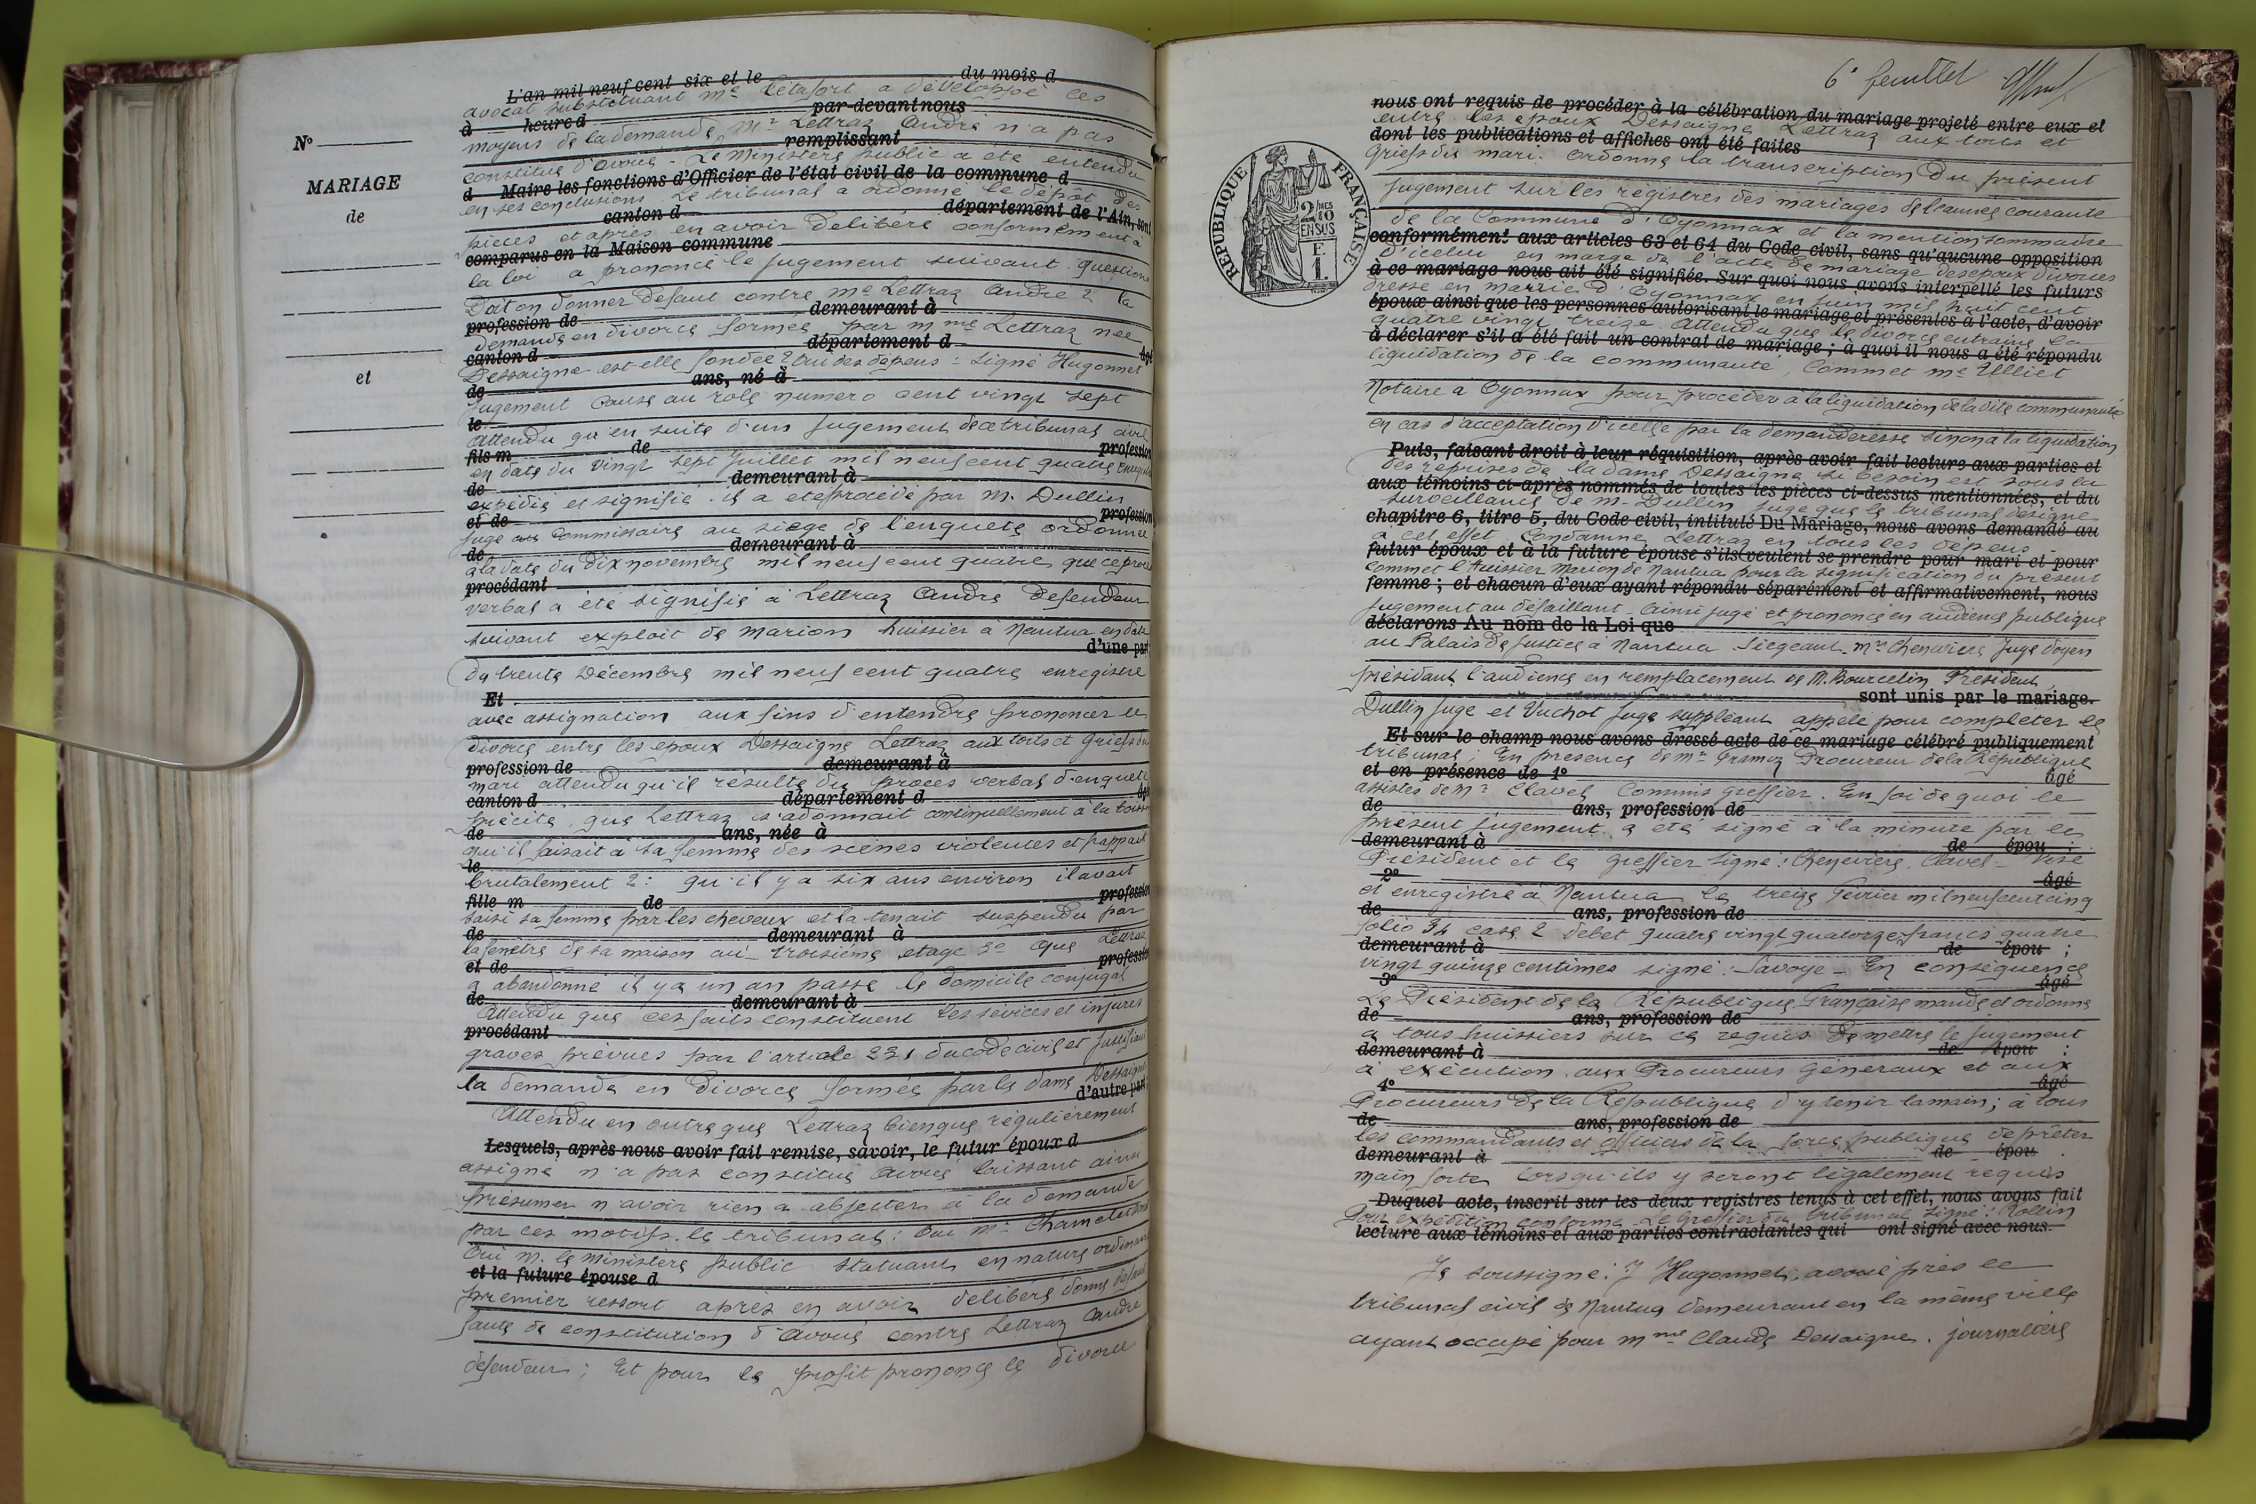 L'an mil neuf cent six et le du mois d
avocat substituant Me Letafort a développé les
à heure d par-devant nous
moyens de la demande, Mr Lettraz André n'a pas
remplissant
constitué d'avoué - Le Ministère public a été entendu
d Maire les fonctions d'Officier de l'état civil de la commune d
en ses conclusions. Le tribunal a ordonné le dépôt des
canton d département de l'Ain, sont
pièces et après en avoir délibéré conformément à
comparus en la Maison commune
la loi a prononcé le jugement suivant. questions
Doit on donner défaut contre Me Lettraz André 2 la
profession de demeurant à
demande en divorce formée par Mme Lettraz née
canton d département d âgé
Dessaigne est elle fondée? Quid des dépens - signé Hugonnet
de ans, né à
Jugement Cause au role numero cent vingt sept
le
Attendu qu'en suite d'un jugement de ce tribunal civil
fils m de profession
en date du vingt sept Juillet mil neuf cent quatre enregistré
de demeurant à
expédié et signifié il a été procédé par M. Dullin
et de profession
juge Commissaire au siège de l'enquête ordonnée
de demeurant à
à la date du dix novembre mil neuf cent quatre que ce procès
procédant
verbal a été signifié à Lettraz André défendeur
suivant exploit de Marion huissier à Nantua en date
d'une part
du trente Décembre mil neuf cent quatre enregistré
Et
avec assignation aux fins d'entendre prononcer le
divorce entre les époux Dessaigne Lettraz aux torts et griefs du
profession de demeurant à
mari attendu qu'il résulte du procès verbal d'enquête
canton d département d âgé
précité que Lettraz s'adonnait continuellement à la boisson
de ans, née à
qu'il faisait à sa femme des scènes violentes et frappait
le
brutalement 2: qu'il y a six ans environ il avait
fille m de profession
saisi sa femme par les cheveux et la tenait suspendu par
de demeurant à
la fenêtre de sa maison au troisième étage 3° que Lettraz
et de profession
a abandonné il y a un an passé le domicile conjugal
de demeurant à
Attendu que ces faits constituent les sévices et injures
procédant
graves prévues par l'article 231 du code civil et justifiant
la demande en divorce formée par la dame Dessaigne
d'autre part
Attendu en outre que Lettraz bien que régulièrement
Lesquels, après nous avoir fait remise, savoir, le futur époux d
assigné n'a pas constitué avoué laissant ainsi
présumer n'avoir rien à objecter à la demande
par ces motifs. le tribunal: Oui Me
Oui M. le Ministère public statuant en nature ordinaire
et la future épouse d
premier ressort après en avoir délibéré donne défaut
faute de constitution d'avoué contre Lettraz André
défendeur; Et pour le profit prononce le divorce
N°
MARIAGE
de
et
6e feuillet
nous ont requis de procéder à la célébration du mariage projeté entre eux et
entre les époux Dessaigne Lettraz aux torts et
dont les publications et affiches ont été faites
griefs du mari. ordonne la transcription du présent
jugement sur les registres des mariages de l'année courante
de la Commune d'Oyonnax et la mention sommaire
conformément aux articles 63 et 64 du Code civil, sans qu'aucune opposition
d'icelui en marge de l'acte de mariage des époux divorcés
à ce mariage nous ait été signifiée. Sur quoi nous avons interpellé les futurs
dressé en mairie d'Oyonnax en juin mil huit cent
époux ainsi que les personnes autorisant le mariage et présentes à l'acte, d'avoir
quatre vingt treize. Attendu que le divorce entraine la
à déclarer s'il a été fait un contrat de mariage; à quoi il nous a été répondu
liquidation de la communauté, Commet Me Ulliet
Notaire à Oyonnax pour procéder à la liquidation de la dite communauté
en cas d'acceptation d'icelle par la demanderesse sinon à la liquidation
Puis, faisant droit à leur réquisition, après avoir fait lecture aux parties et
des reprises de la dame Dessaigne si besoin est sous la
aux témoins ci-après nommés de toutes les pièces ci-dessus mentionnées, et du
surveillance de M. Dullin juge que le tribunal désigne
chapitre 6, titre 5, du Code civil, intitulé Du Mariage, nous avons demandé au
à cet effet Condamne Lettraz en tous les dépens -
futur époux et à la future épouse s'ils veulent se prendre pour mari et pour
commet l'huissier Marion de Nantua pour la signification du présent
femme; et chacun d'eux ayant répondu séparément et affirmativement, nous
jugement au défaillant. Ainsi jugé et prononcé en audience publique
déclarons Au nom de la Loi que
au Palais de justice à Nantua Siégeant. Mrs Chenevière Juge doyen
présidant l'audience en remplacement de M. Bourcelin Président
sont unis par le mariage.
Dullin juge et Vuchot juge suppléant appelé pour compléter le
Et sur le champ nous avons dressé acte de ce mariage célébré publiquement
tribunal; En présence de Mr Framoz Procureur de la République
et en présence de 1° âgé
assistés de Mr Clavel Commis greffier. En foi de quoi le
de ans, profession de
présent jugement a été signé à la minute par le
demeurant à de épou ;
Président et le greffier signé: Chenevière. Clavel - Visé
2° âgé
et enregistré à Nantua le treize Février mil neuf cent cinq
de ans, profession de
folio 34 case 2 débet quatre vingt quatorze francs quatre
demeurant à de épou ;
vingt quinze centimes signé: Savoye - En conséquence
3° âgé
Le Président de la République Française mande et ordonne
de ans, profession de
à tous huissiers sur ce requis de mettre le jugement
demeurant à de épou :
à exécution aux Procureurs généraux et aux
4° âgé
Procureurs de la République d'y tenir la main; à tous
de ans, profession de
les commandants et officiers de la force publique de prêter
demeurant à de épou
main forte lorsqu'ils y seront légalement requis
Duquel acte, inscrit sur les deux registres tenus à cet effet, nous avons fait
Pour expédition conforme. Le Greffier du tribunal signé: Rollin
lecture aux témoins et aux parties contractantes qui ont signé avec nous.
Je soussigné: J Hugonnet, avoué près le
tribunal civil de Nantua demeurant en la même ville
ayant occupé pour Mme Claude Dessaigne. journalière
RÉPUBLIQUE FRANÇAISE
2/10
EN SUS
E
1.